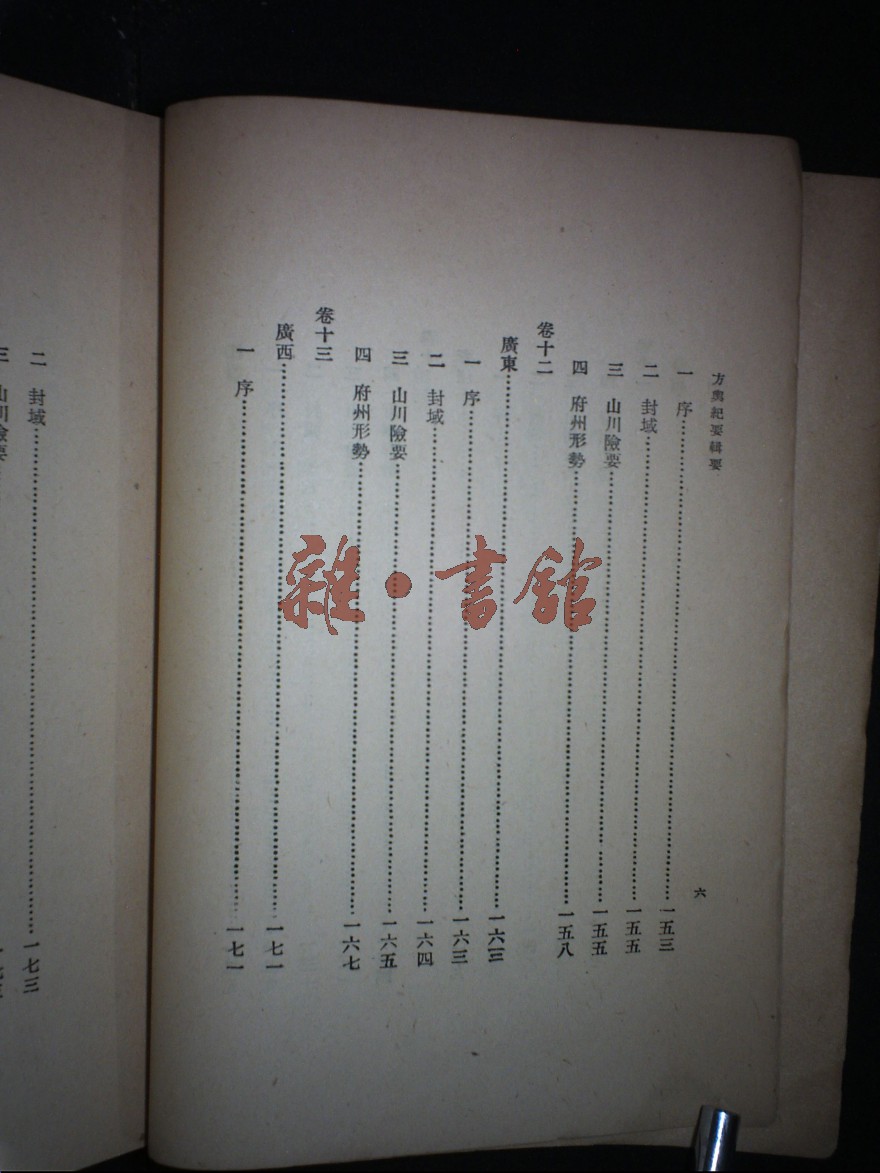 方輿紀要輯要
六
一 序……一五三
二 封域……一五五
三 山川險要……一五五
四 府州形勢……一五八
卷十二
廣東……一六三
一 序……一六三
二 封域……一六四
三 山川險要……一六五
四 府州形勢……一六七
卷十三
廣西……一七一
一 序……一七一
二 封域……一七三
三 山川險要
雜·書館